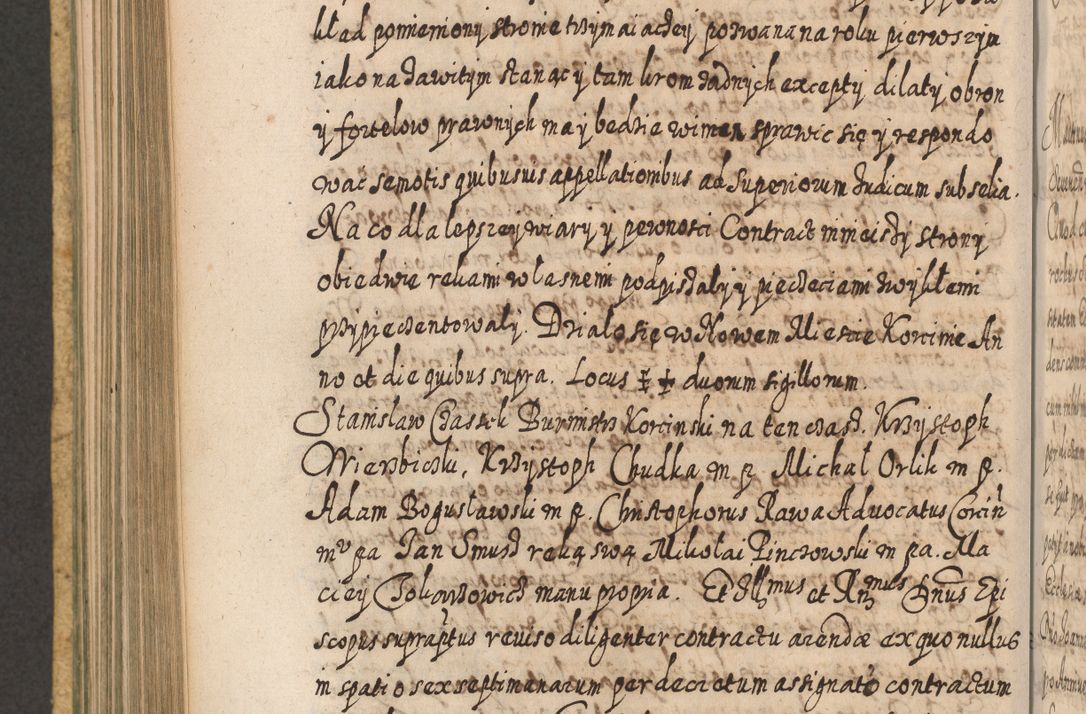 kład pomieniony stronie trzymaiącey pozwana na roku pierwszym
iako na zawitym stanąc y tam krom żadnych excepty dilaty obron
y fortelow prawnych ma y będzie winna sprawic się y respondo
wac semotis quibusuis appellationibus ad Superiorum Iudicum subselia.
Na co dla lepszey wiary y pewnosci Contract ninieiszy strony
obiedwie rękami własnemi podpisały y pieczęciami zwykłemi
przypieczentowały. Działo się w Nowem Miescie Korcinie An
no et die quibus supra. Locus ‡ ‡ duorum sigillorum.
Stanisław Burmistrz Korcinski na ten czas. Krzystoph
Wierzbicki, Krzystoph Chudka m p. Michał Orlik m p.
Adam Bogusławski m p. Christophorus Rawa Aduocatus Corcin
mu ppa Jan Smusz ręką swą Mikołai Pinczowski m pa. Ma
ciey manu propria. Et Illmus et Rmus Dnus Epi
scopus supraptus reuiso diligenter contractu arendæ ex quo nullus
in spatio sex septimanarum per decretum assignato contractum